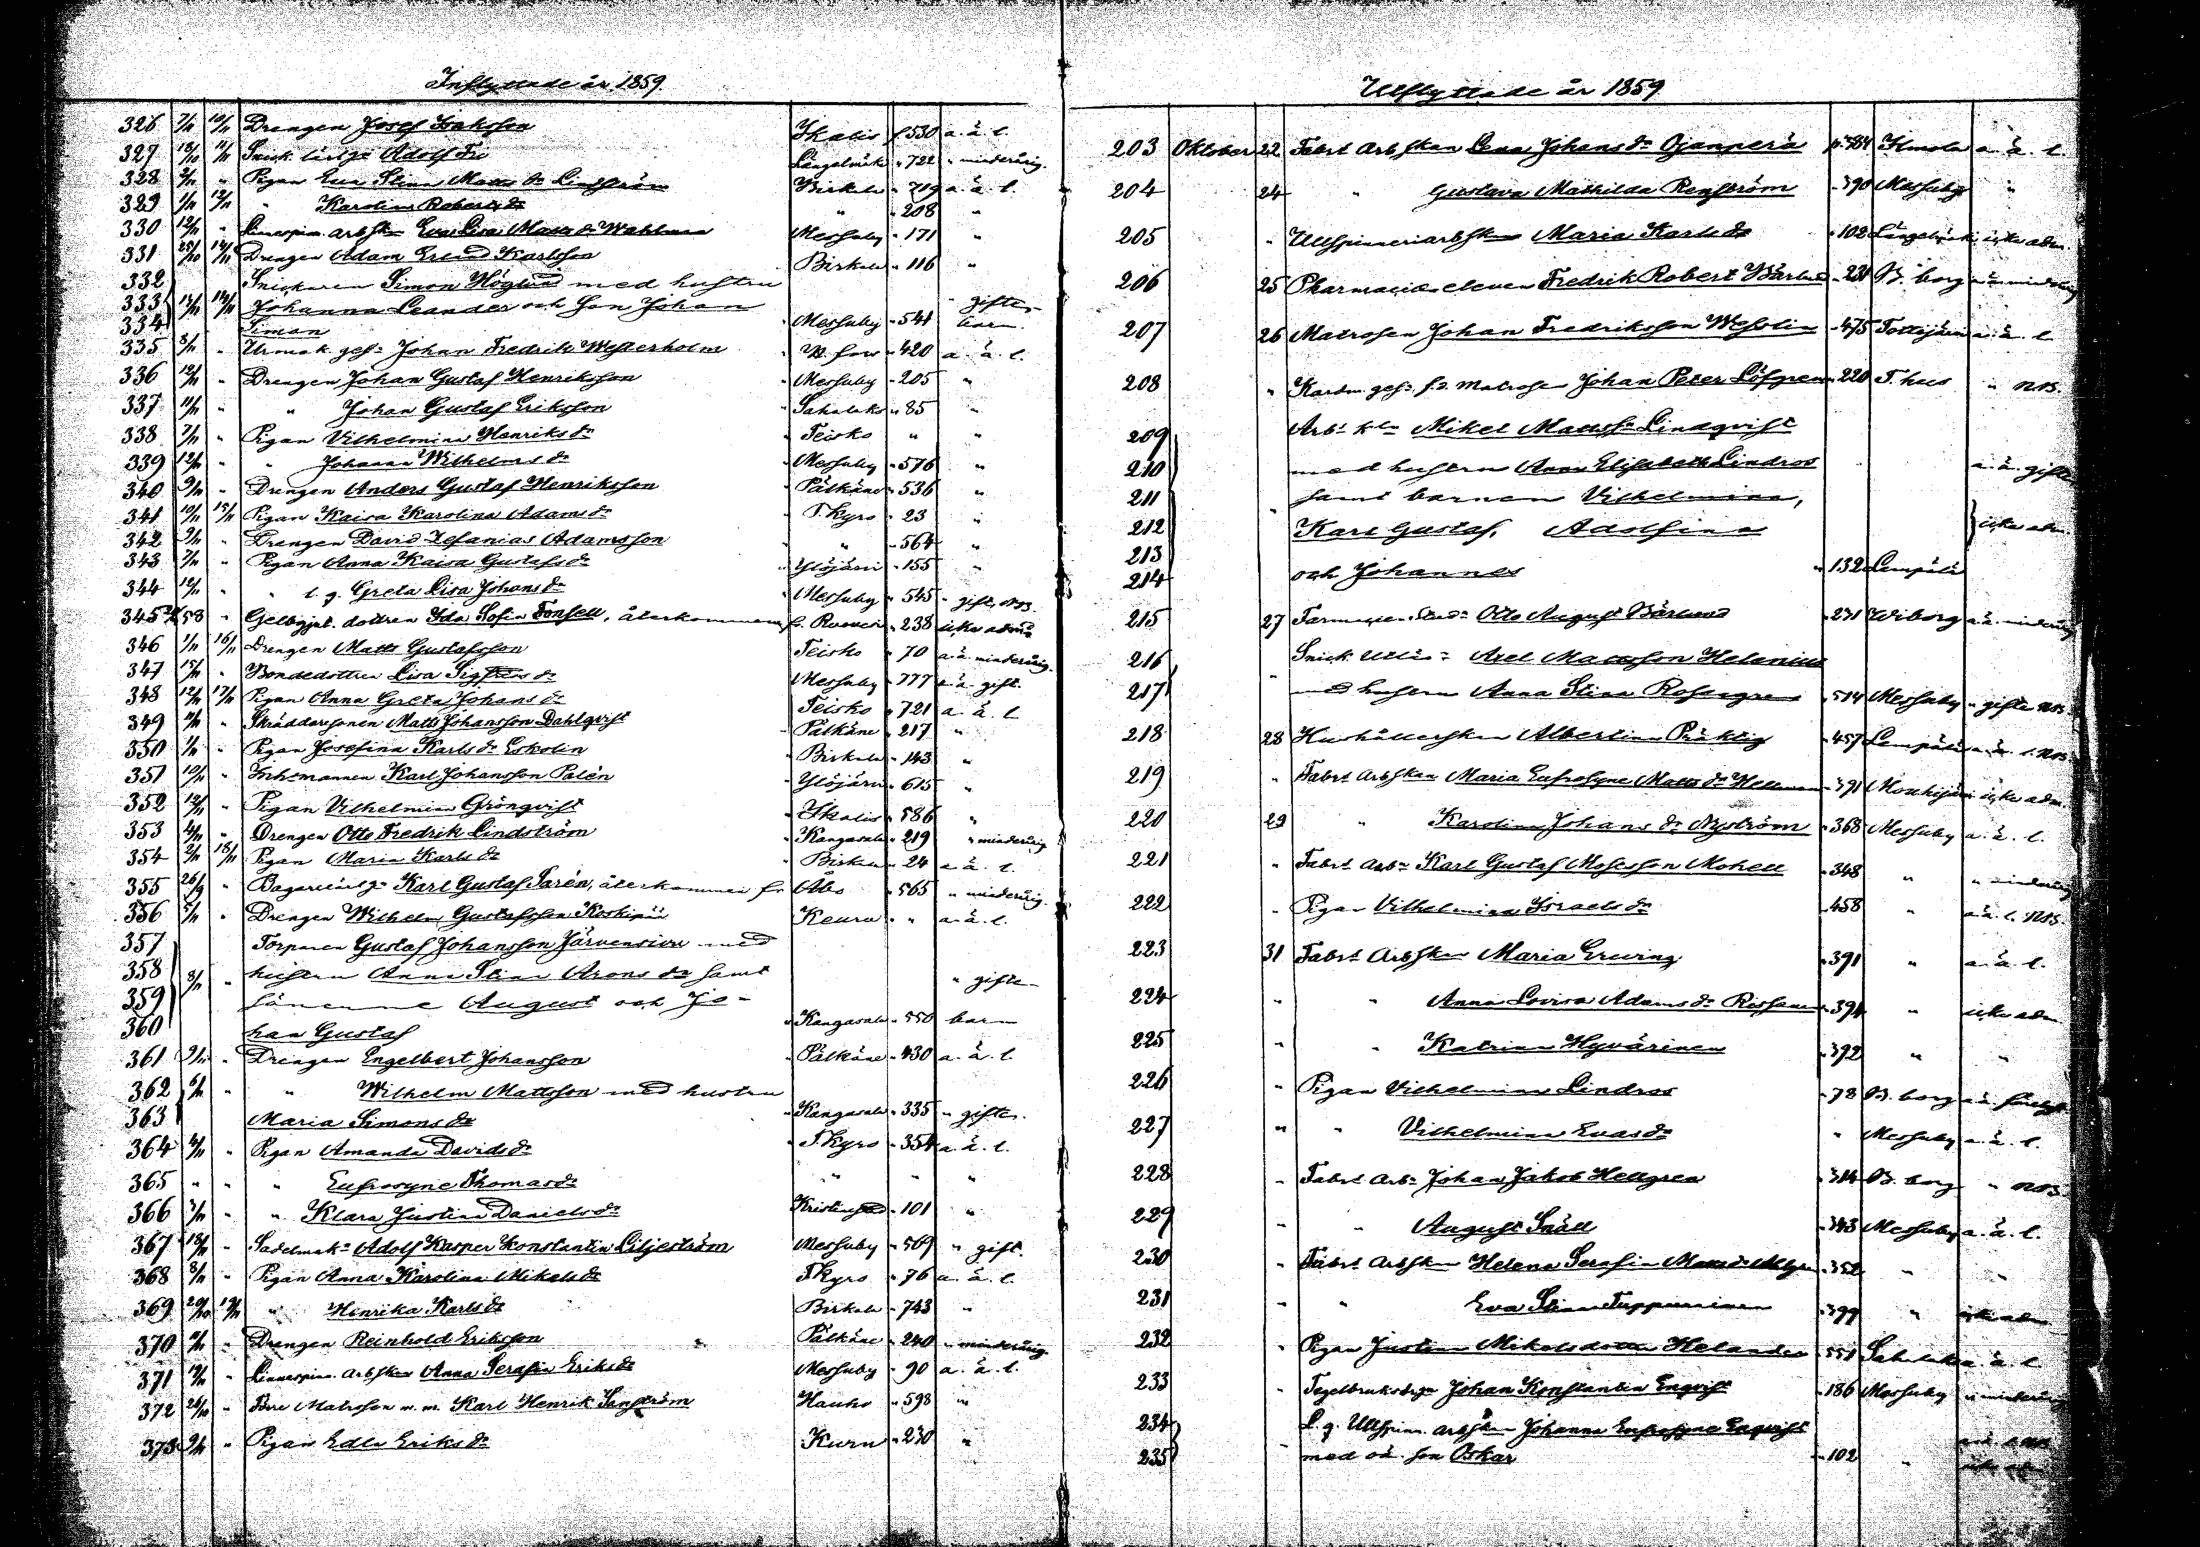 Inflyttade år 1859.
326 7/11 10/11 Drengen Josef Isaksson Ikalis p. 530 a. ä. l.
327 18/10 11/11 Snick. lärl:ge Adolf Längelmäki " 722 " minderårig
328 " Pigan Eva Stina Matts d:r Lindström Birkala " 719 a. ä. l.
329 12/11 " Karolina Roberts d:r " " 208 "
330 12/11 " Linnespinn. arbskan Eva Lisa Matts d:r Wahlman Messuby " 171 "
331 25/10 14/11 Drengen Adam Erland Karlsson Birkala " 116 "
332 Snickaren Simon Höglund med hustru
333 14/11 Johanna Leander och son Johan " gifta
334 Simon " Messuby " 541 barn
335 8/11 " Urmak. ges: Johan Fredrik Westerholm " 420 a. ä. l.
336 12/11 " Drengen Johan Gustaf Henriksson " Messuby " 205 "
337 11/11 " " Johan Gustaf Eriksson " Sahalaks " 85 "
338 7/11 " Pigan Vilhelmina Henriks d:r " Teisko " " "
339 12/11 " " Johanna Wilhelms d:r " Messuby " 576 "
340 9/11 " Drengen Anders Gustaf Henriksson " Pälkäne " 536 "
341 10/11 15/11 Pigan Kaisa Karolina Adams d:r " T. kyro " 23 "
342 9/11 " Drengen David Zefanias Adamsson " " 564 "
343 7/11 " Pigan Anna Kaisa Gustafs d:r " Ylöjärvi " 155 "
344 12/11 " " l. g. Greta Lisa Johans d:r " Messuby " 545 " gift, N.B.
345 58 " Gelbgjut. dottren Ida Sofia Fonsell, återkommen fr. " 238 icke adm.
346 1/11 16/11 Drengen Matts Gustafsson Teisko " 70 a. ä. minderårig
347 15/11 " Bondedottren Lisa Sigfrids d:r " Messuby " 777 a. ä. gift.
348 12/11 17/11 Pigan Anna Greta Johans d:r " Teisko " 721 a. ä. l.
349 " Skräddaresonen Matts Johansson Dahlqvist " Pälkäne " 217 "
350 " Pigan Josefina Karls d:r Eskolin " Birkala " 143 "
351 10/11 " Inhs-mannen Karl Johansson Palén " Ylöjärvi " 615 "
352 12/11 " Pigan Vilhelmina Grönqvist " Ikalis " 586 "
353 4/11 " Drengen Otto Fredrik Lindström " Kangasala " 219 " minderårig
354 2/11 18/11 Pigan Maria Karls d:r " Birkala " 24 a. ä. l.
355 26/9 " Bagarelärl:ge Karl Gustaf Sarén, återkommen fr. Åbo " 565 " minderårig
356 " Drengen Wilhelm Gustafsson Koskipää Keuru " " a. ä. l.
357 Torparen Gustaf Johansson Järvensivu med
358 8/11 " hustrun Anna Stina Arons d:r samt " gifta
359 sönerne August och Jo-
360 han Gustaf " Kangasala " 550 barn
361 9/11 " Drengen Engelbert Johansson " Pälkäne " 430 a. ä. l.
362 " " Wilhelm Mattsson med hustru
363 Maria Simons d:r " Kangasala " 335 " gifta
364 " Pigan Amanda Davids d:r " T. kyro " 354 a. ä. l.
365 " " " Eufrosyne Thomas d:r " " " "
366 " " Klara Justina Daniels d:r Kristinestad " 101 "
367 18/11 " Sadelmak: Adolf Kasper Konstantin Liljeström Messuby " 509 " gift.
368 8/11 " Pigan Anna Karolina Mikels d:r T. kyro " 76 a. ä. l.
369 20/10 19/11 " Henrika Karls d:r Birkala " 743 "
370 " Drengen Reinhold Eriksson Pälkäne " 240 " minderårig
371 " Linnespinn. arbskan Anna Serafia Eriks d:r Messuby " 90 a. ä. l.
372 " Förre Matrosen m. m. Karl Henrik Hauho " 598 "
373 9/11 " Pigan Edla Eriks d:r Kuru " 230 "
Utflyttade år 1859
203 Oktober 22 Fabrs Arbskan Lena Johans d:r Ojanperä p. 384 a. ä. l.
204 24 " Gustava Mathilda Renström " 390 Messuby "
205 " Ullspinneriarbskan Maria Karls d:r " 102 Längelmäki icke adm.
206 25 Pharmacie eleven Fredrik Robert Bärlund " 231 B. borg a. ä. minderårig
207 26 Matrosen Johan Fredriksson Wesolin " 475 Tottijärvi a. ä. l.
208 " Karlm. ges: f. d. Matrosen Johan Peter Löfgren " 220 T. hus " N.B.
209 Arb: k:ln Mikel Mattss: Lindqvist
210 med hustrun Anna Elisabeth Lindroos a. ä. gifta
211 samt barnen Vilhelmina,
212 " Karl Gustaf, Adolfina icke adm.
213
214 och Johannes " 132 Lempälä
215 27 Farmacie Stud: Otto August Bärlund " 231 Wiborg a. ä. minderårig
216 Snick. Axel Mattsson Helenius
217 " med hustrun Anna Stina Rosengren " 514 Messuby " gifta N.B.
218 28 Hushållerskan Albertina Präktig " 457 Lempälä a. ä. l. N.B.
219 " Fabrs Arbskan Maria Eufrosyne Matts d:r Hellman " 371 icke adm.
220 29 " Karolina Johans d:r Nyström " 368 Messuby a. ä. l.
221 " Fabrs Arb: Karl Gustaf Mosesson Mohell " 348 " " minderårig
222 " Pigan Vilhelmina Israels d:r " 458 " a. ä. l. N.B.
223 31 Fabrs Arbskan Maria Erving " 391 " a. ä. l.
224 " " Anna Lovisa Adams d:r " 394 " icke adm.
225 " " Katrina Hyvärinen " 392 " "
226 " Pigan Vilhelmina Lindroos " 78 B. borg a. ä.
227 " " Vilhelmina Evas d:r " Messuby a. ä. l.
228 " Fabrs Arb: Johan Jakob Hellgren " 314 B. borg " N.B.
229 " " August Snäll " 343 Messuby a. ä. l.
230 " Fabrs Arbskan Helena Serafia Matts d:r " 352 " "
231 " " Eva Stina Tuppurainen " 399 " icke adm
232 " Pigan Justina Mikelsdotter Helander " 551 Sahalaks a. ä. l.
233 " Tegelbruksdr: Johan Konstantin Enqvist " 186 Messuby " minderårig
234 L. g. Ullspinn. arbskan Johanna Eufrosyne Enqvist
235 " med oä. son Oskar " 102 "